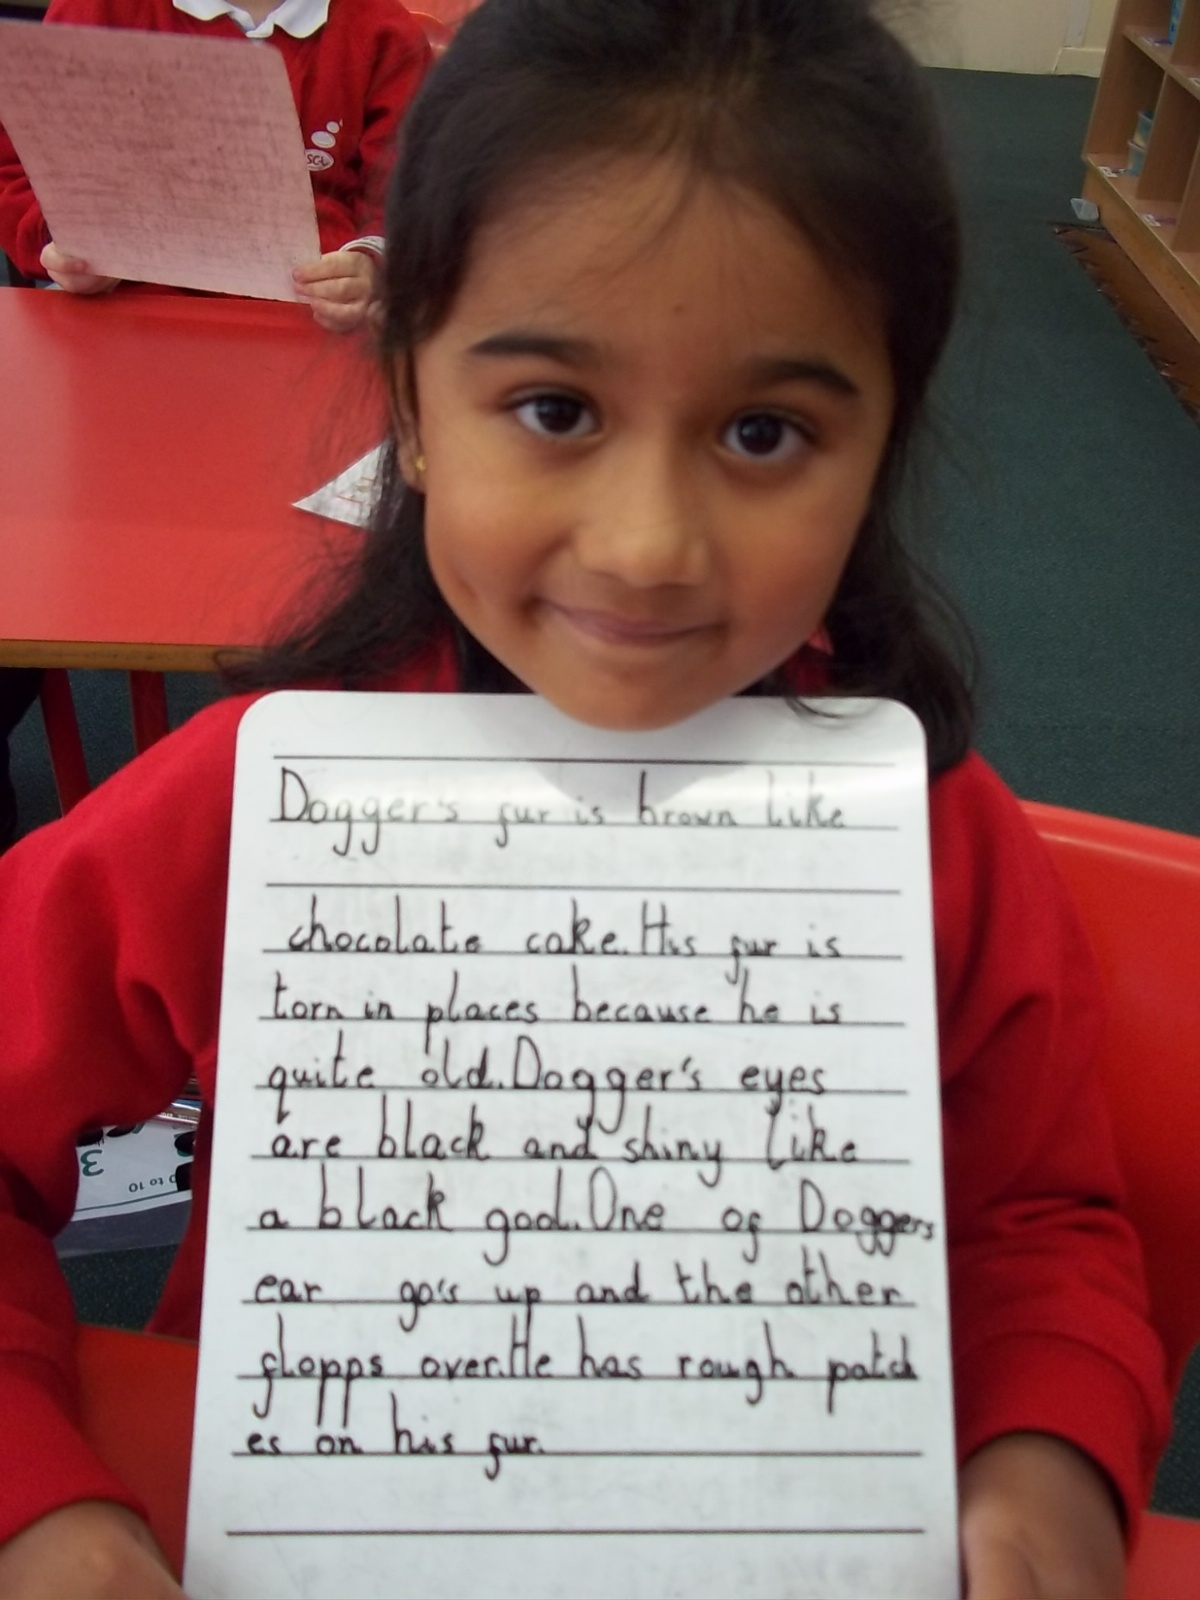 SGL
Dogger's fur is brown like
chocolate cake. His fur is
torn in places because he is
quite old. Dogger's eyes
are black and shiny like
3
to 10
a black god. One of Doggers
ear go's up and the other
flopps over. He has rough patch
es on his fur.